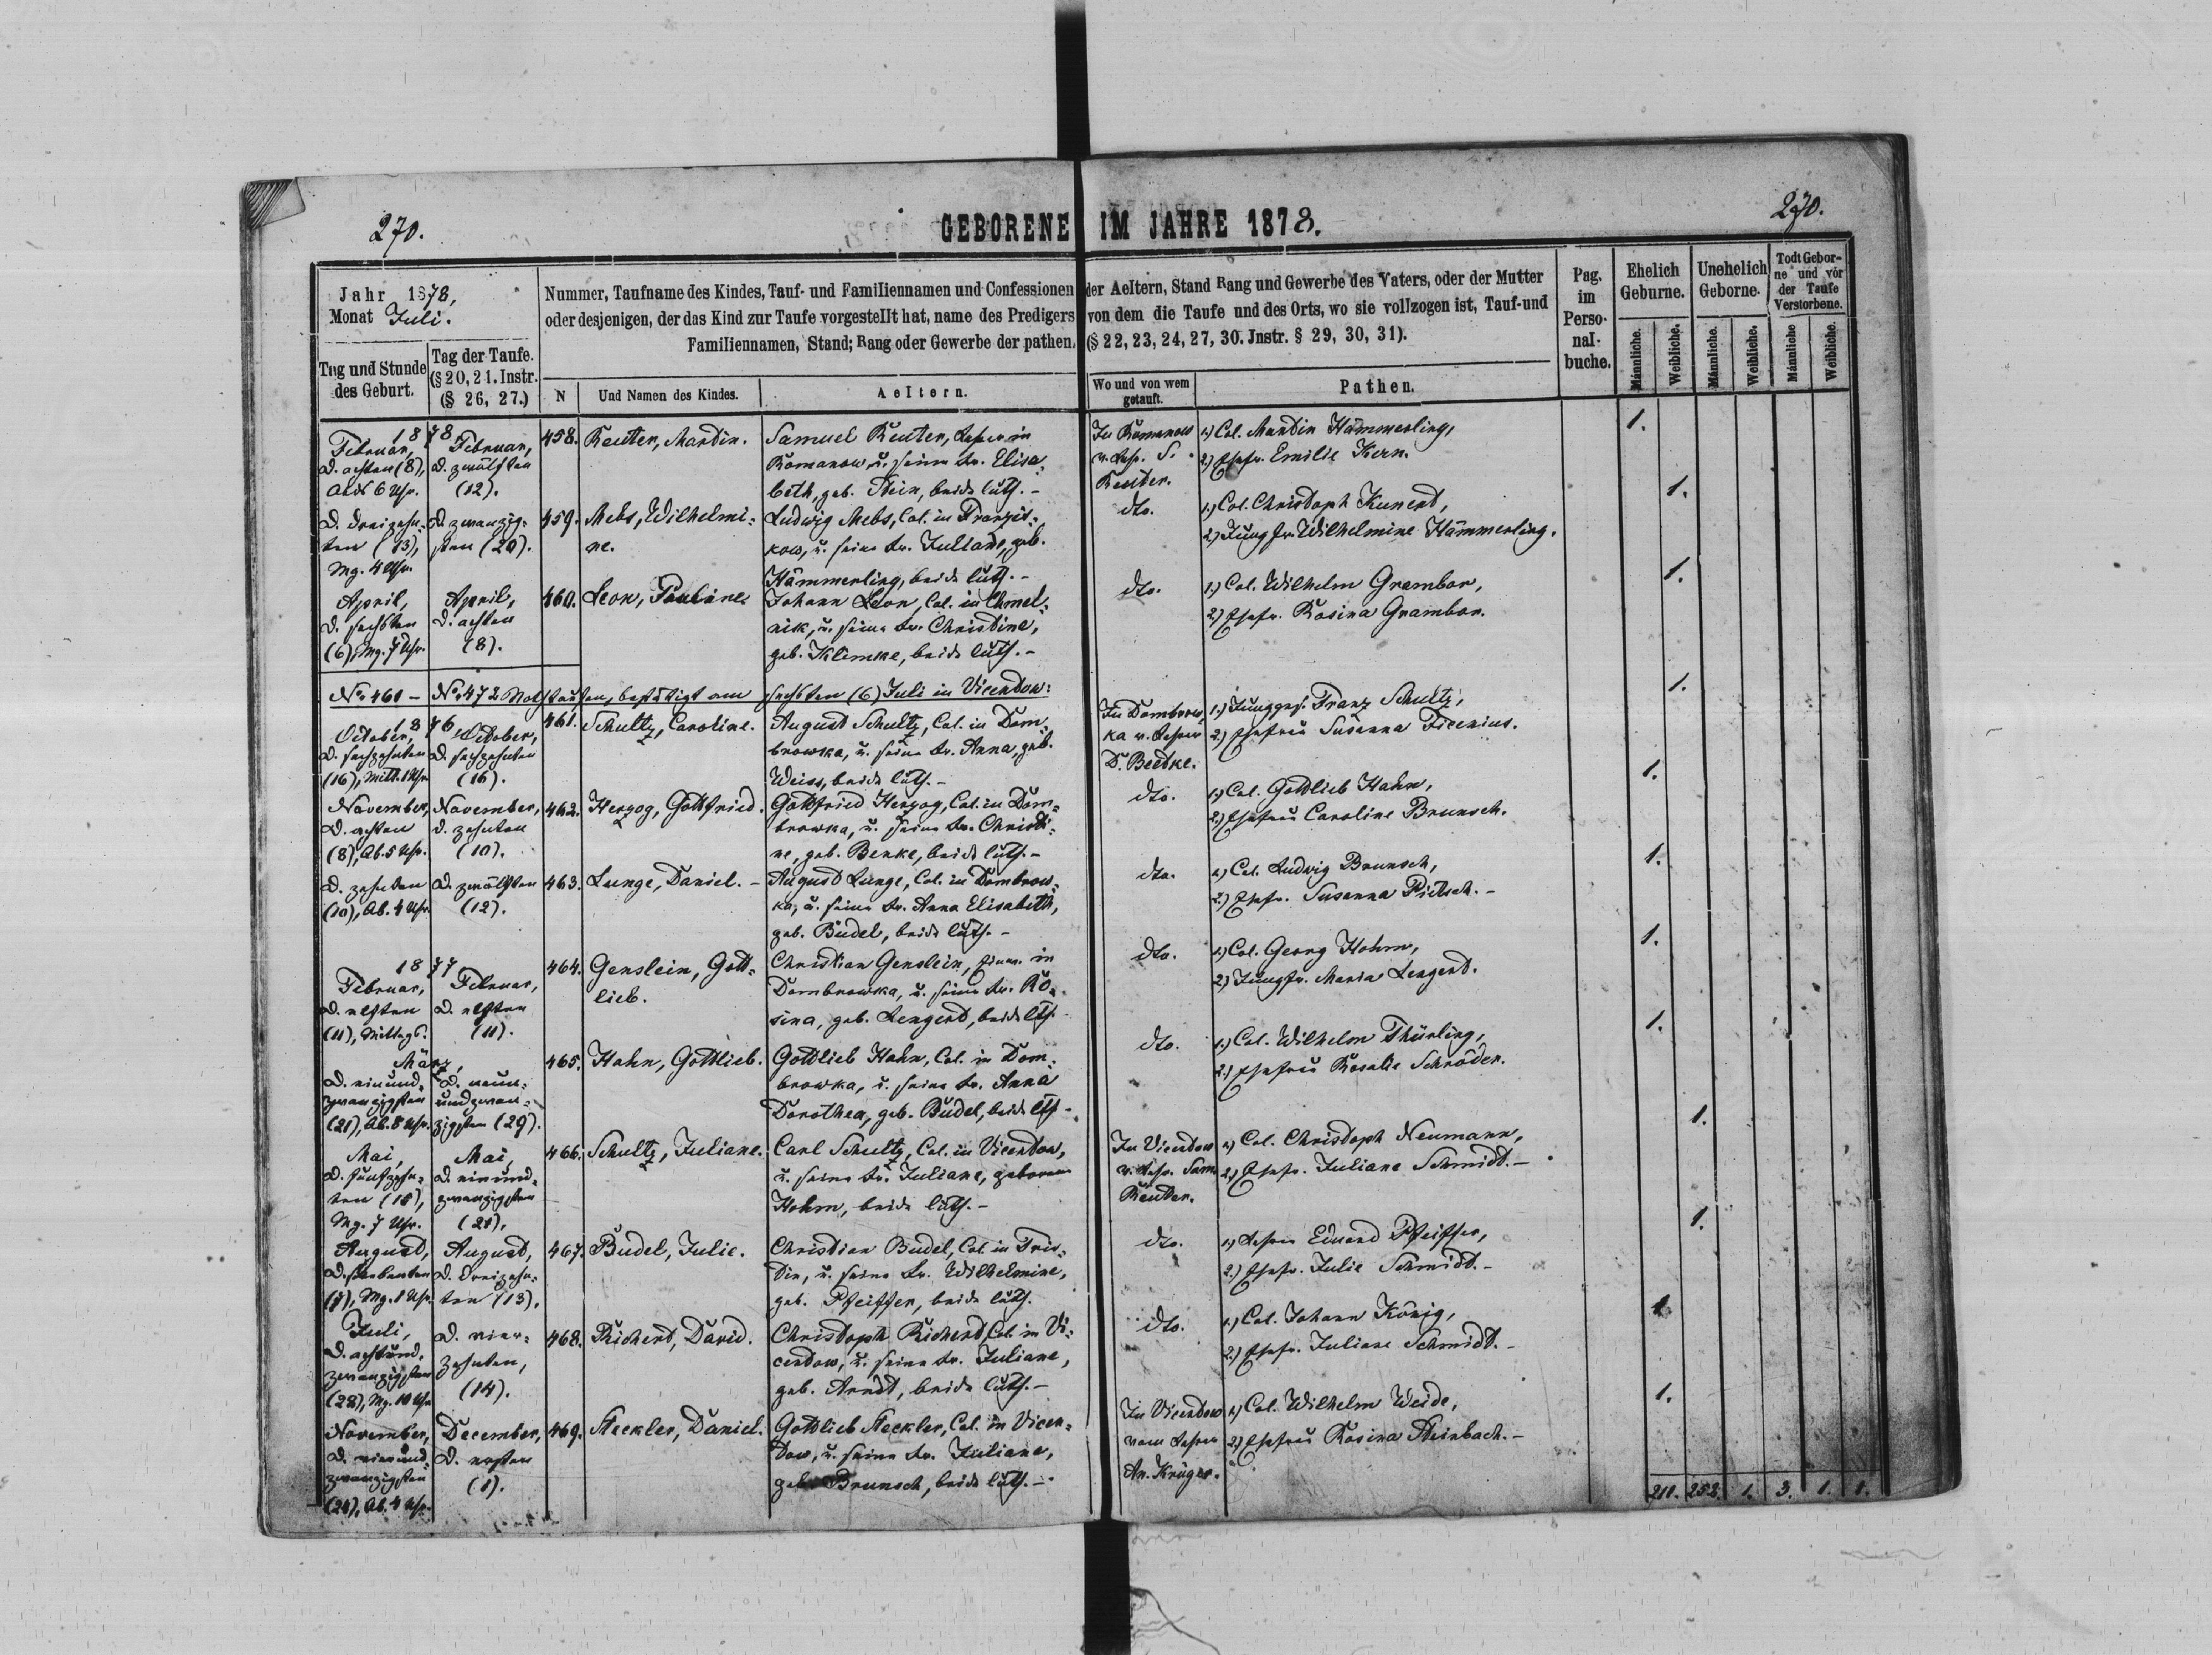 270.
GEBORENE IM JAHRE 1878.
270.
Jahr 1878,
Monat Juli.
Tag und Stunde des Geburt.
Tag der Taufe. (§ 20, 21. Instr. (§ 26, 27.)
Nummer, Taufname des Kindes, Tauf- und Familiennamen und Confessionen der Aeltern, Stand Rang und Gewerbe des Vaters, oder der Mutter
oder desjenigen, der das Kind zur Taufe vorgestellt hat, name des Predigers von dem die Taufe und des Orts, wo sie vollzogen ist, Tauf-und
Familiennamen, Stand; Rang oder Gewerbe der pathen. (§ 22, 23, 24, 27, 30. Jnstr. § 29, 30, 31).
N
Und Namen des Kindes.
Aeltern.
Wo und von wem getauft.
Pathen.
Pag. im Perso- nal- buche.
Ehelich Geburne.
Unehelich Geborne.
Todt Gebor- ne und vör der Taufe Verstorbene.
Männliche.
Weibliche.
Männliche.
Weibliche.
Männliche
Weibliche.
1878
Februar,
d. achten (8),
Abds 6 Uhr.
Februar,
d. zwölften
(12).
458.
Reuter, Martin.
Samuel Reuter, Lehrer in
Romanow u. seine Fr. Elisa-
beth, geb. Stein, beide luth. -
In Romanow
v. Lehr. S.
Reuter.
1.) Col. Martin Hämmerling,
2.) Ehefr. Emilie Kern.
1.
d. dreizehn-
ten (13),
Mg. 4 Uhr.
d. zwanzig-
sten (20).
459.
Mebs, Wilhelmi-
ne.
Ludwig Mebs, Col. in Franzis-
kow, u. seine Fr. Juliane, geb.
Hämmerling, beide luth. -
dto.
1.) Col. Christoph Kunert,
2.) Jungfr. Wilhelmine Hämmerling.
1.
April,
d. sechsten
(6), Mg. 7 Uhr.
April,
d. achten
(8).
460.
Leon, Pauline.
Johann Leon, Col. in Chmel-
nik, u. seine Fr. Christine,
geb. Klimke, beide luth. -
dto.
1.) Col. Wilhelm Grambor,
2.) Ehefr. Rosina Grambor.
1.
No 461 - No 472 Nothtaufen, bestätigt am sechsten (6) Juli in Vicentow:
1876
October,
d. sechzehnten
(16), Mitt. 1 Uhr
October,
d. sechzehnten
(16).
461.
Schultz, Caroline.
August Schultz, Col. in Dom-
browka, u. seine Fr. Anna, geb.
Weiss, beide luth. -
In Dombrow-
ka v. Lehrer
D. Beetke.
1.) Junggs. Franz Schultz,
2.) Ehefrau Susanna Ficenius.
1.
November,
d. achten
(8), Ab. 5 Uhr.
November,
d. zehnten
(10).
462.
Herzog, Gottfried.
Gottfried Herzog, Col. in Dom-
browka, u. seine Fr. Christi-
ne, geb. Benke, beide luth. -
dto.
1.) Col. Gottlieb Hahn,
2.) Ehefrau Caroline Brunsch.
1.
d. zehnten
(10), Ab. 4 Uhr.
d. zwölften
(12).
463.
Lunge, Daniel. -
August Lunge, Col. in Dombrow-
ka, u. seine Fr. Anna Elisabeth,
geb. Büdel, beide luth. -
dto.
1.) Col. Ludwig Brunsch,
2.) Ehefr. Susanna Pietsch. -
1.
1877
Februar,
d. elften
(11), Mittags.
Februar,
d. elften
(11).
464.
Genslein, Gott-
lieb.
Christian Genslein, in
Dombrowka, u. seine Fr. Ro-
sina, geb. Lengert, beide lth.
dto.
1.) Col. Georg Hohm,
2.) Jungfr. Maria Lengert.
1.
März,
d. einund-
zwanzigsten
(21), Ab. 8 Uhr.
d. neun-
undzwan-
zigsten (29).
465.
Hahn, Gottlieb.
Gottlieb Hahn, Col. in Dom-
browka, u. seine Fr. Anna
Dorothea, geb. Büdel, beide lth. -
dto.
1.) Col. Wilhelm Thürling,
2.) Ehefrau Rosalie Schröder.
1.
Mai,
d. fünfzehn-
ten (15),
Mg. 7 Uhr.
Mai,
d. einund-
zwanzigsten
(21).
466.
Schultz, Juliane.
Carl Schultz, Col. in Vicentow,
u. seine Fr. Juliane, geborene
Hohm, beide luth. -
In Vicentow
v. Lehr. Sam.
Reuter.
1.) Col. Christoph Neumann,
2.) Ehefr. Juliane Schmidt. -
1.
August,
d. siebenten
(7), Mg. 1 Uhr.
August,
d. dreizehn-
ten (13).
467.
Budel, Julie.
Christian Budel, Col. in Tris-
tin, u. seine Fr. Wilhelmine,
geb. Pfeiffer, beide luth.
dto.
1.) Lehrer Eduard Pfeiffer,
2.) Ehefr. Julie Schmidt. -
1.
Juli,
d. achtund-
zwanzigsten
(28), Mg. 10 Uhr
d. vier-
zehnten,
(14).
468.
Richert, David.
Christoph Richert, Col. in Vi-
centow, u. seine Fr. Juliane,
geb. Arndt, beide luth. -
dto.
1.) Col. Johann König,
2.) Ehefr. Juliane Schmidt. -
1.
November,
d. vierund-
zwanzigsten
(24), Ab. 4 Uhr.
December,
d. ersten
(1).
469.
Steckler, Daniel.
Gottlieb Steckler, Col. in Vicen-
tow, u. seine Fr. Juliane,
geb. Brunsch, beide luth. -
In Vicentow
vom Lehrer
An. Krüger.
1.) Col. Wilhelm Weide,
2.) Ehefrau Rosina Steinbach. -
1.
211. 252. 1. 3. 1. 1.